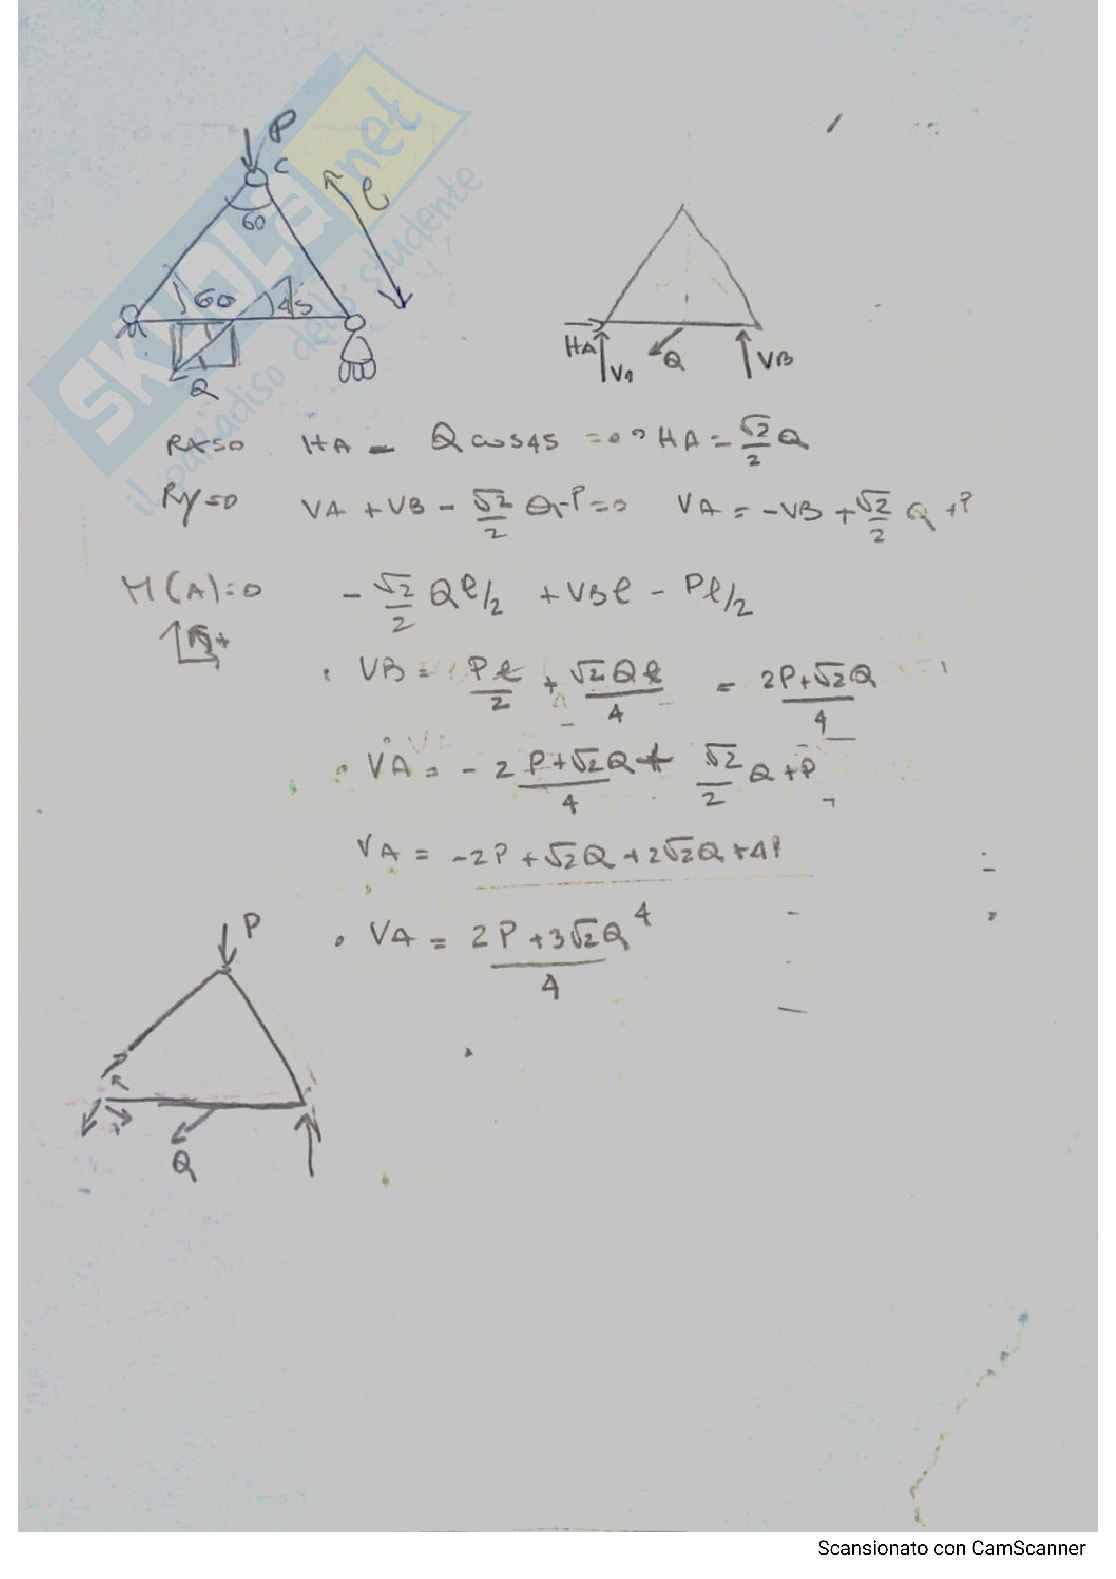 P
C
60
l
60
45
Q
HA
VA
Q
VB
SKUOLA.net
il paradiso dello studente
Rx=0 HA - Q cos45 =0 => HA = √2/2 Q
Ry=0 VA + VB - √2/2 Q - P = 0 VA = -VB + √2/2 Q + P
M(A)=0 - √2/2 Q l/2 + VB l - P l/2
VB = Pl/2 + √2Ql/4 = 2P+√2Q/4
VA = - 2P+√2Q/4 + √2/2 Q + P
VA = -2P + √2Q + 2√2Q + 4P
4
VA = 2P + 3√2Q/4
P
Q
Scansionato con CamScanner